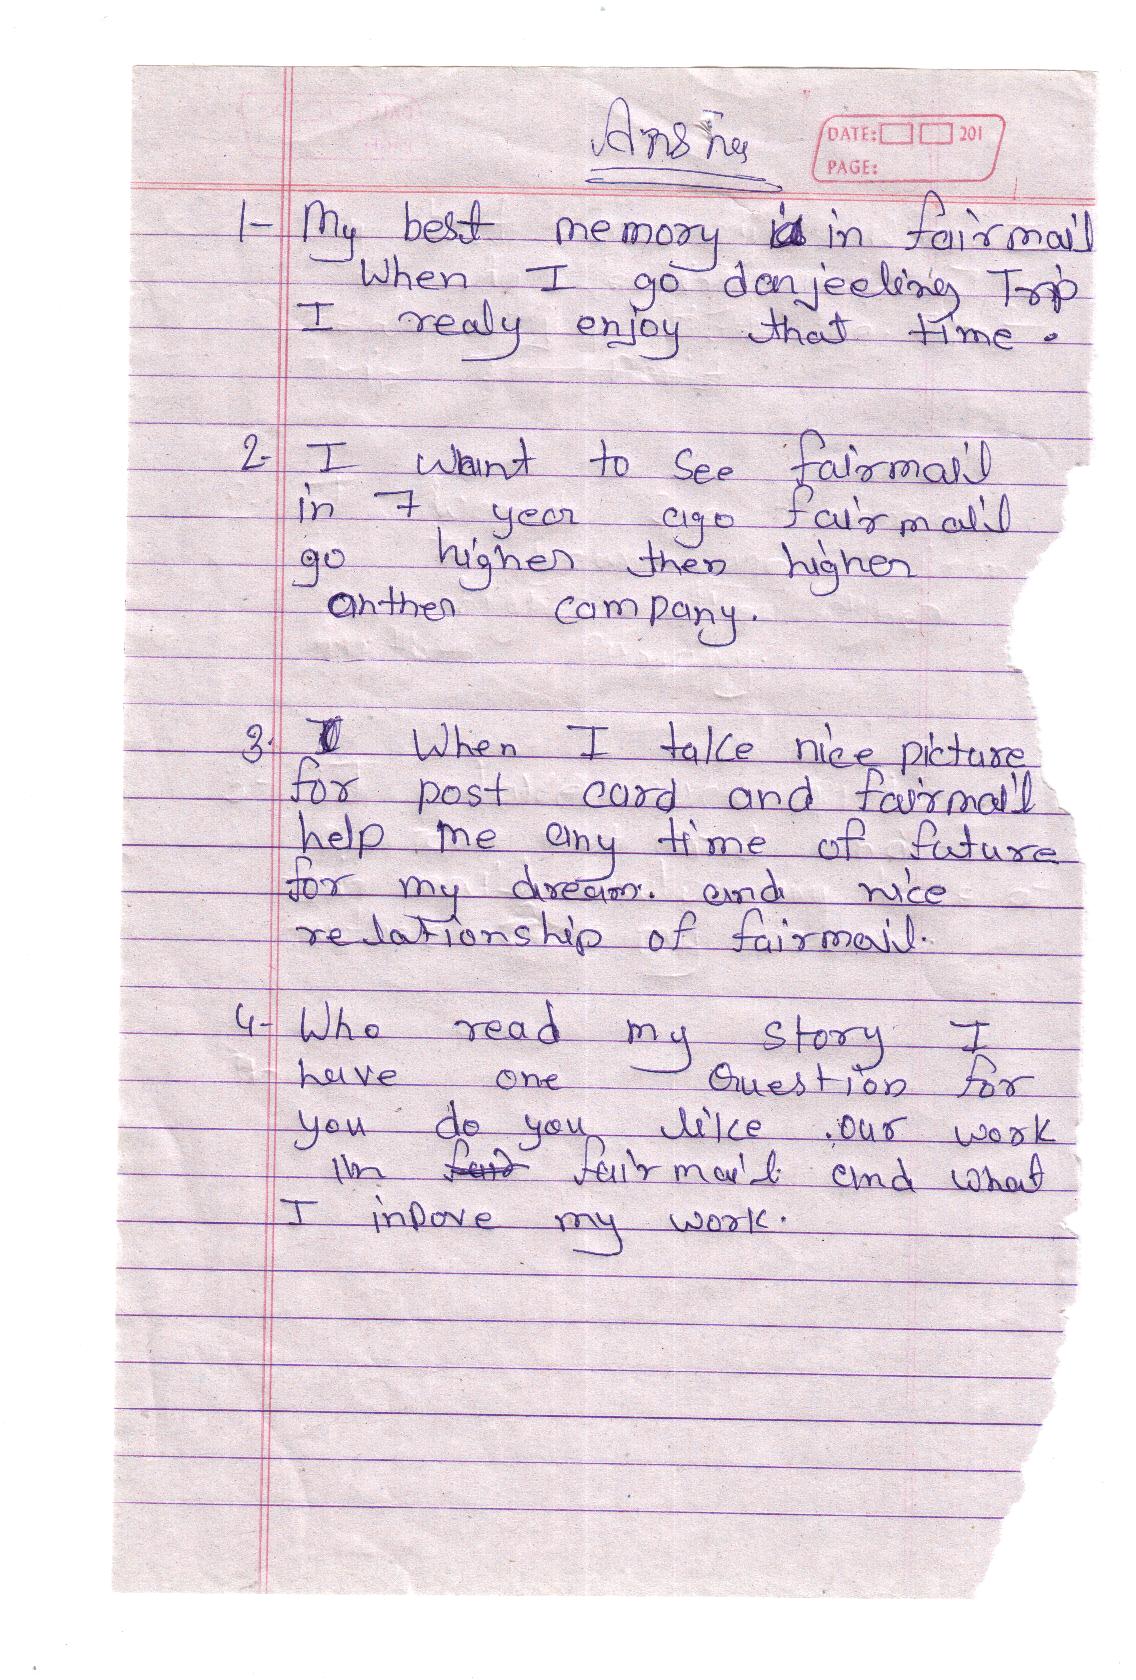 Anshu
DATE: 201
PAGE:
1- My best memory is in fairmail
When I go darjeeling Trip
I realy enjoy that time.
2- I want to see fairmail
in 7 year ago fairmail
go higher then higher
anther company.
3. When I take nice picture
for post card and fairmail
help me any time of future
for my dream. and nice
relationship of fairmail.
4- Who read my story I
have one Question for
you do you like our work
im fairmail and what
I inpove my work.